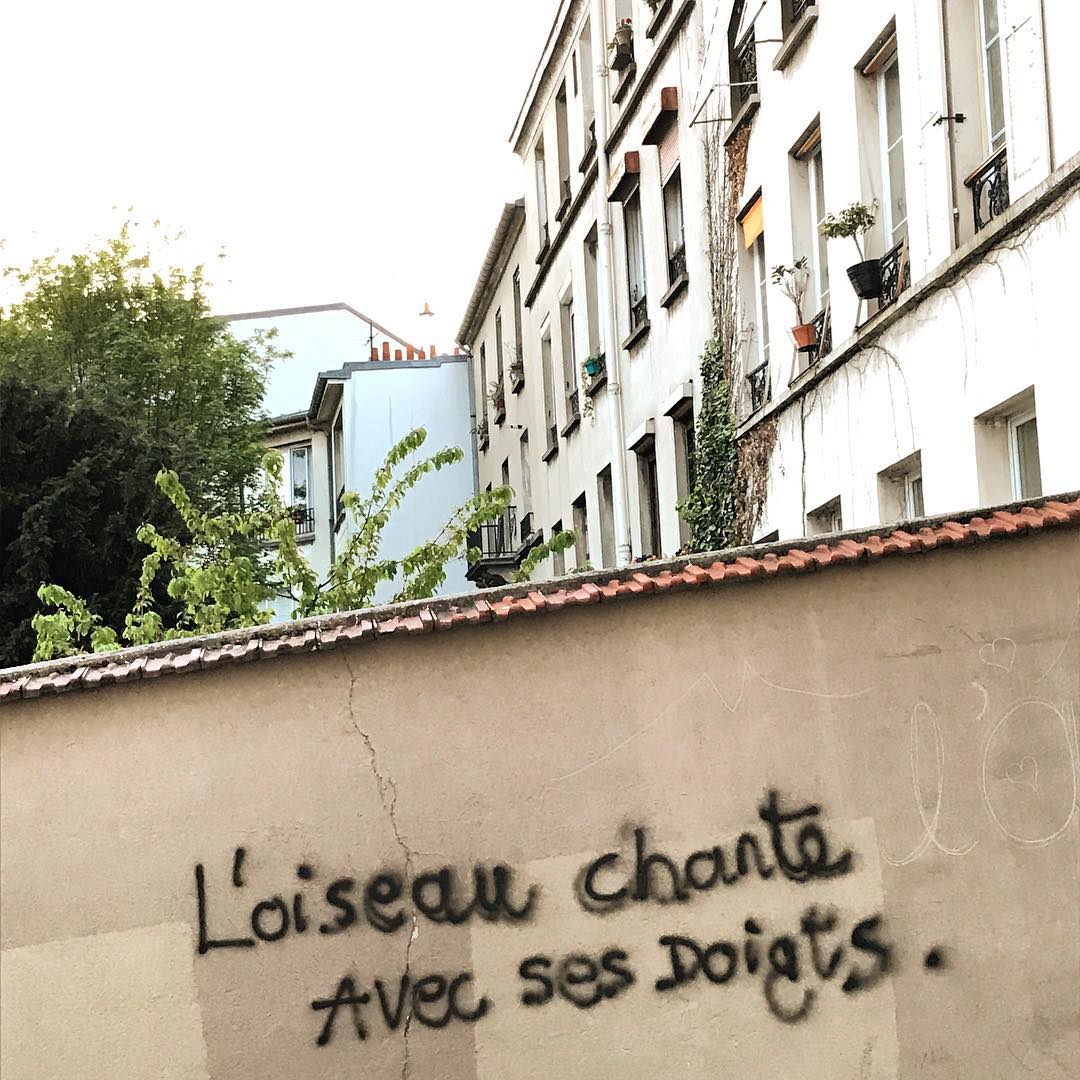 L'oiseau chante
Avec ses Doigts.
l'O